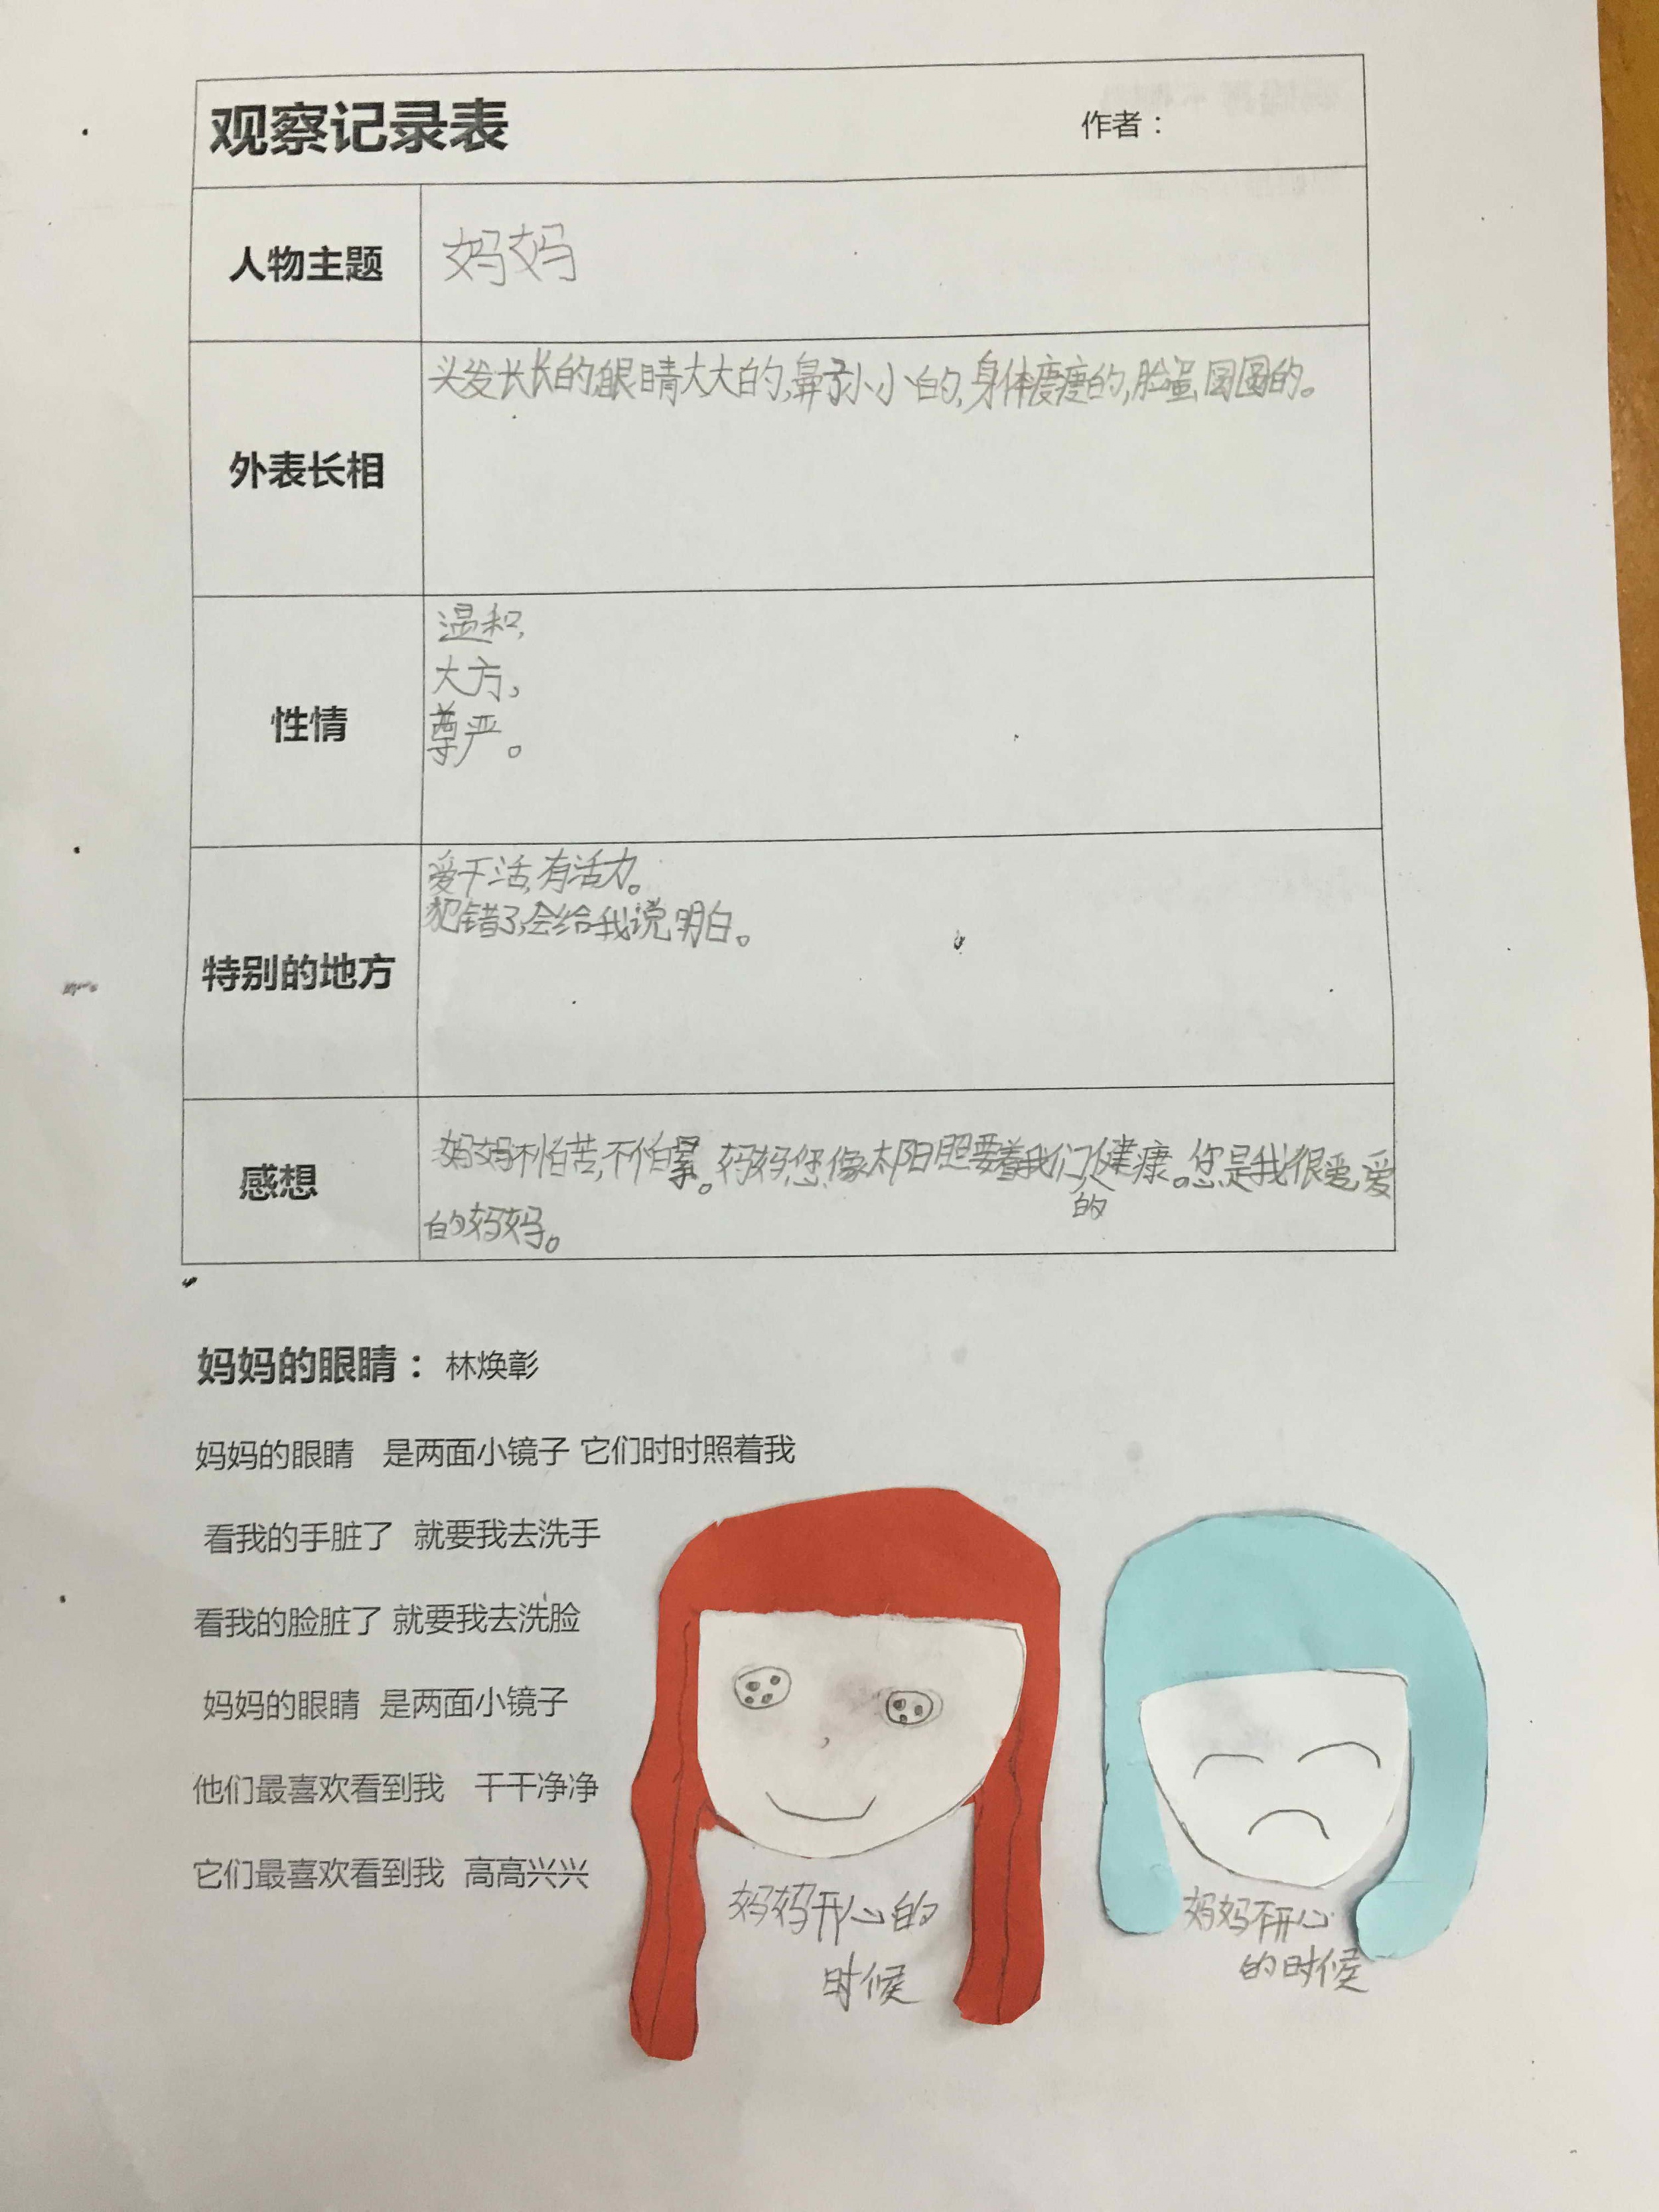 观察记录表 作者：
人物主题 妈妈
外表长相 头发长长的,眼睛大大的,鼻子小小的,身体瘦瘦的,脸蛋圆圆的。
性情 温和,
大方,
尊严。
特别的地方 爱干活,有活力。
犯错了,会给我说明白。
感想 妈妈不怕苦,不怕累。妈妈,您像太阳照要着我们的健康。您是我很爱,爱
的妈妈。
妈妈的眼睛：林焕彰
妈妈的眼睛 是两面小镜子 它们时时照着我
看我的手脏了 就要我去洗手
看我的脸脏了 就要我去洗脸
妈妈的眼睛 是两面小镜子
他们最喜欢看到我 干干净净
它们最喜欢看到我 高高兴兴
妈妈开心的
时候
妈妈不开心
的时候